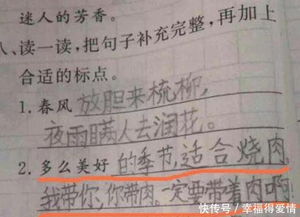 迷人的芳香。
八、读一读,把句子补充完整,再加上
合适的标点。
1. 春风放胆来梳柳,
夜雨瞒人去润花。
2. 多么美好的季节,适合烧肉,
我带你,你带肉。一定要带着肉啊
快传号/幸福得爱情